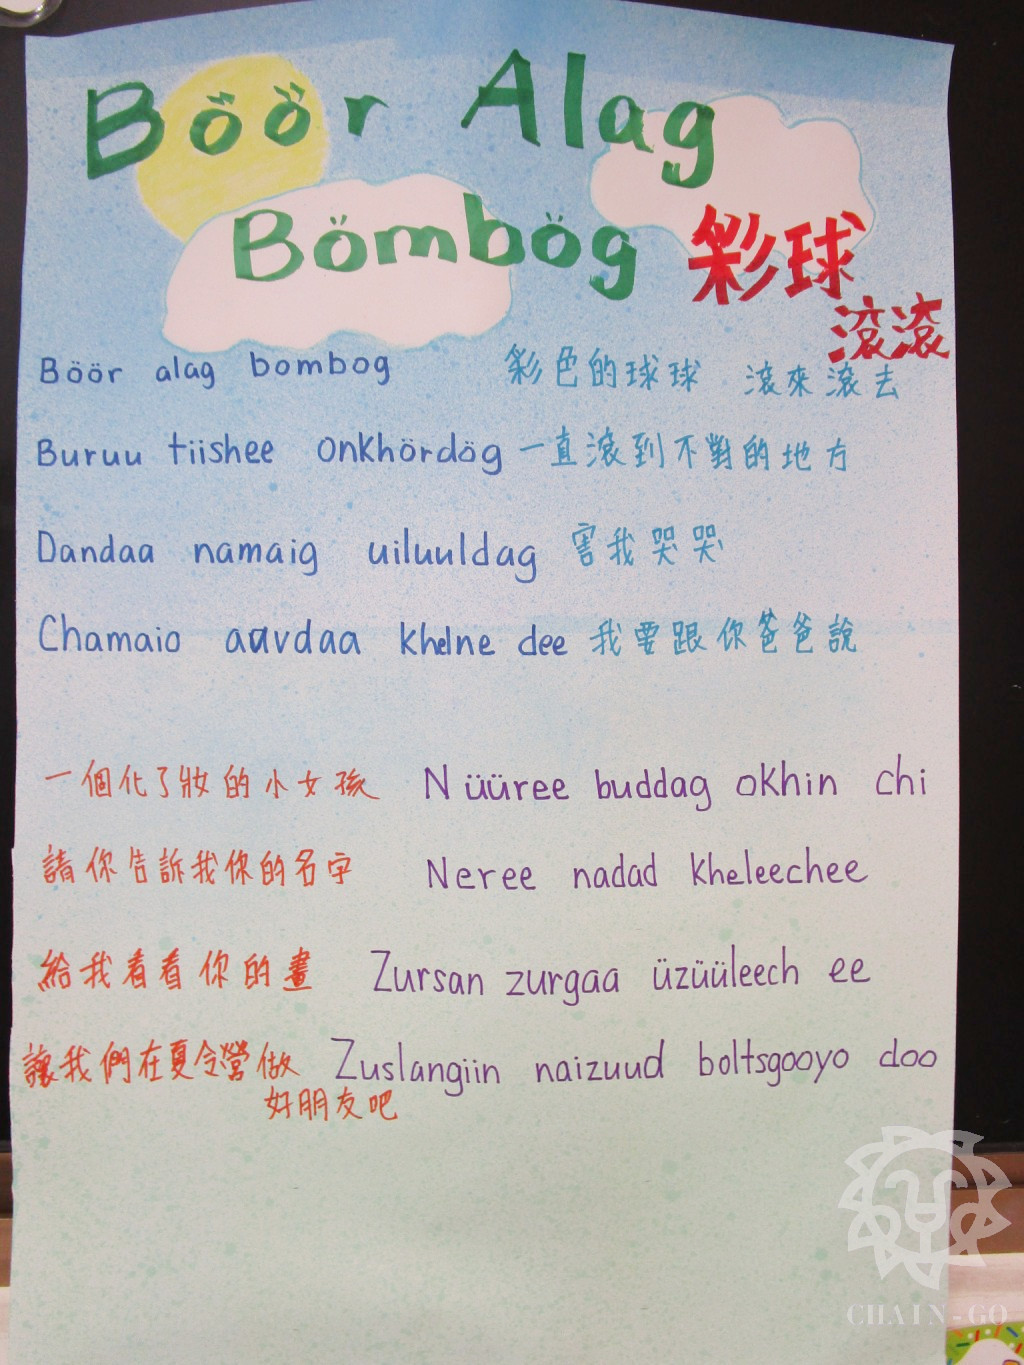 Böör Alag
Bömbög 彩球
滾滾
Böör alag bombog 彩色的球球 滾來滾去
Buruu tiishee onkhördög 一直滾到不對的地方
Dandaa namaig uiluuldag 害我哭哭
Chamaio aavdaa khelne dee 我要跟你爸爸說
一個化了妝的小女孩 Nüüree buddag okhin chi
請你告訴我你的名字 Neree nadad kheleechee
給我看看你的畫 Zursan zurgaa üzüüleech ee
讓我們在夏令營做 Zuslangiin naizuud boltsgooyo doo
好朋友吧
CHAIN-GO